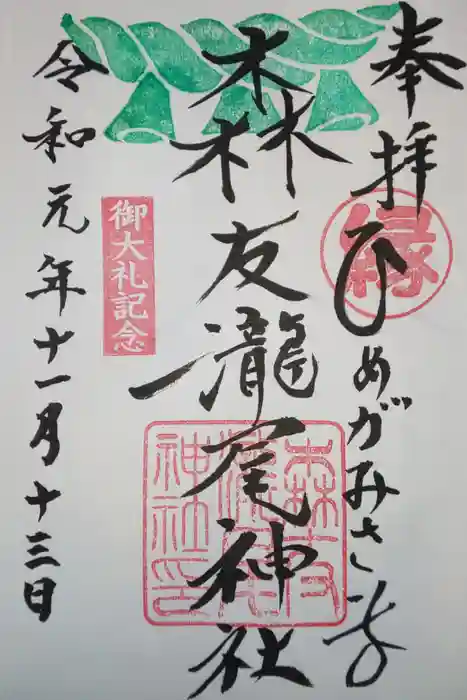 奉拝
ひめがみさま
縁
森友瀧尾神社
森友瀧尾神社印
御大礼記念
令和元年十一月十三日